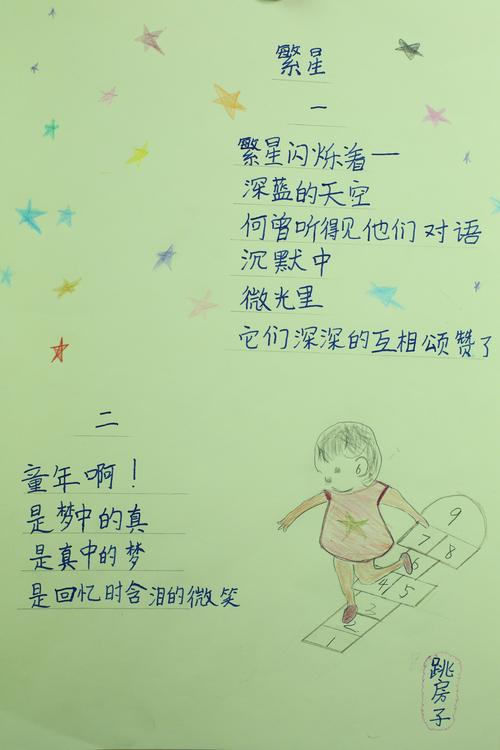 繁星
一
繁星闪烁着一
深蓝的天空
何曾听得见他们对语
沉默中
微光里
它们深深的互相颂赞了
二
童年啊！
是梦中的真
是真中的梦
是回忆时含泪的微笑
9
7 8
6
4 5
3
2
1
跳房子